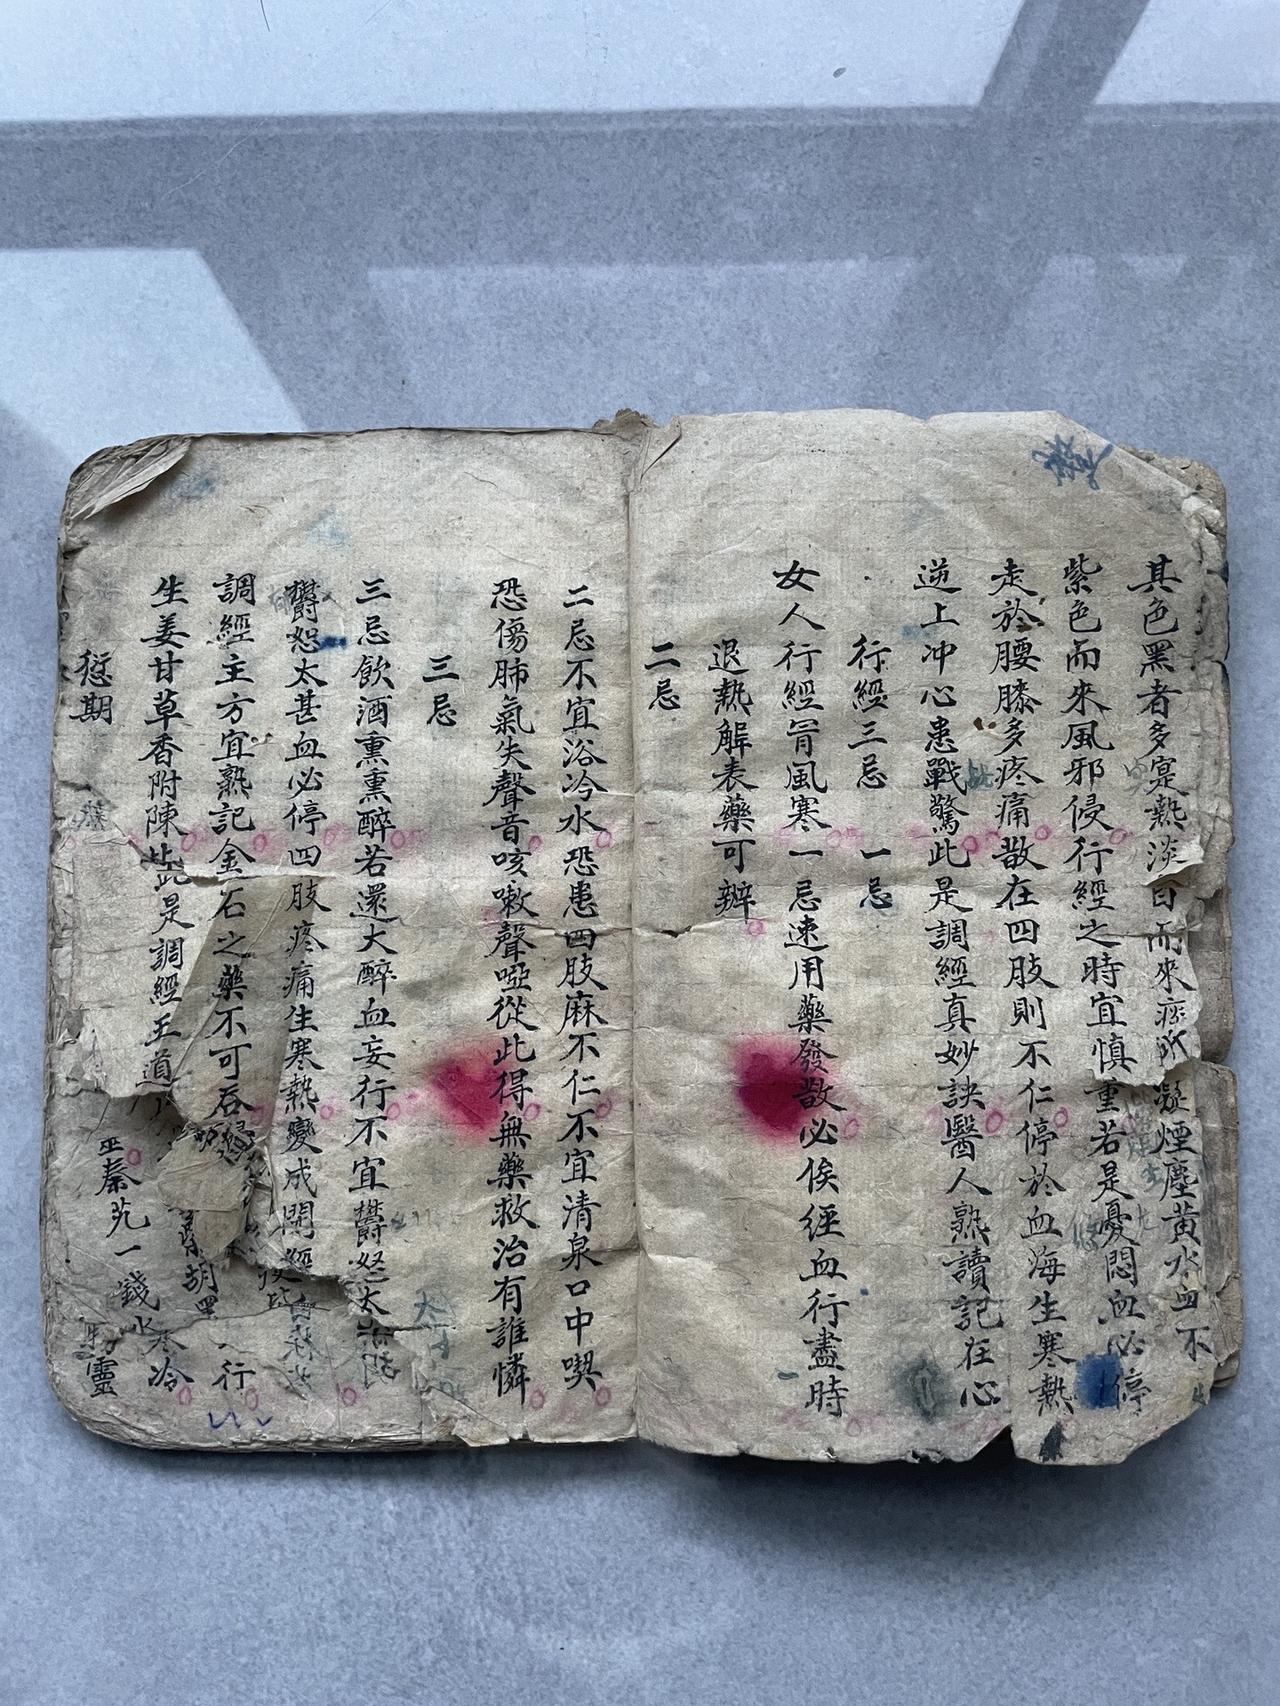 其色黑者多寔熱淡白而來痰所凝煙塵黃水血不
紫色而來風邪侵行經之時宜慎重若是憂悶血必停
走於腰膝多疼痛散在四肢則不仁停於血海生寒熱
逆上冲心患戰驚此是調經真妙訣醫人熟讀記在心
行經三忌 一忌
女人行經冐風寒一忌速用藥發散必俟經血行盡時
退熱解表藥可辨
二忌
二忌不宜浴冷水恐患四肢麻不仁不宜清泉口中喫
恐傷肺氣失聲音咳嗽聲啞從此得無藥救治有誰憐
三忌
三忌飲酒熏熏醉若還大醉血妄行不宜欝怒太
欝怒太甚血必停四肢疼痛生寒熱變成閉經
調經主方宜熟記金石之藥不可吞
生姜甘草香附陳此是調經王道
愆期
胡
行
秦艽一錢
寒冷
靈